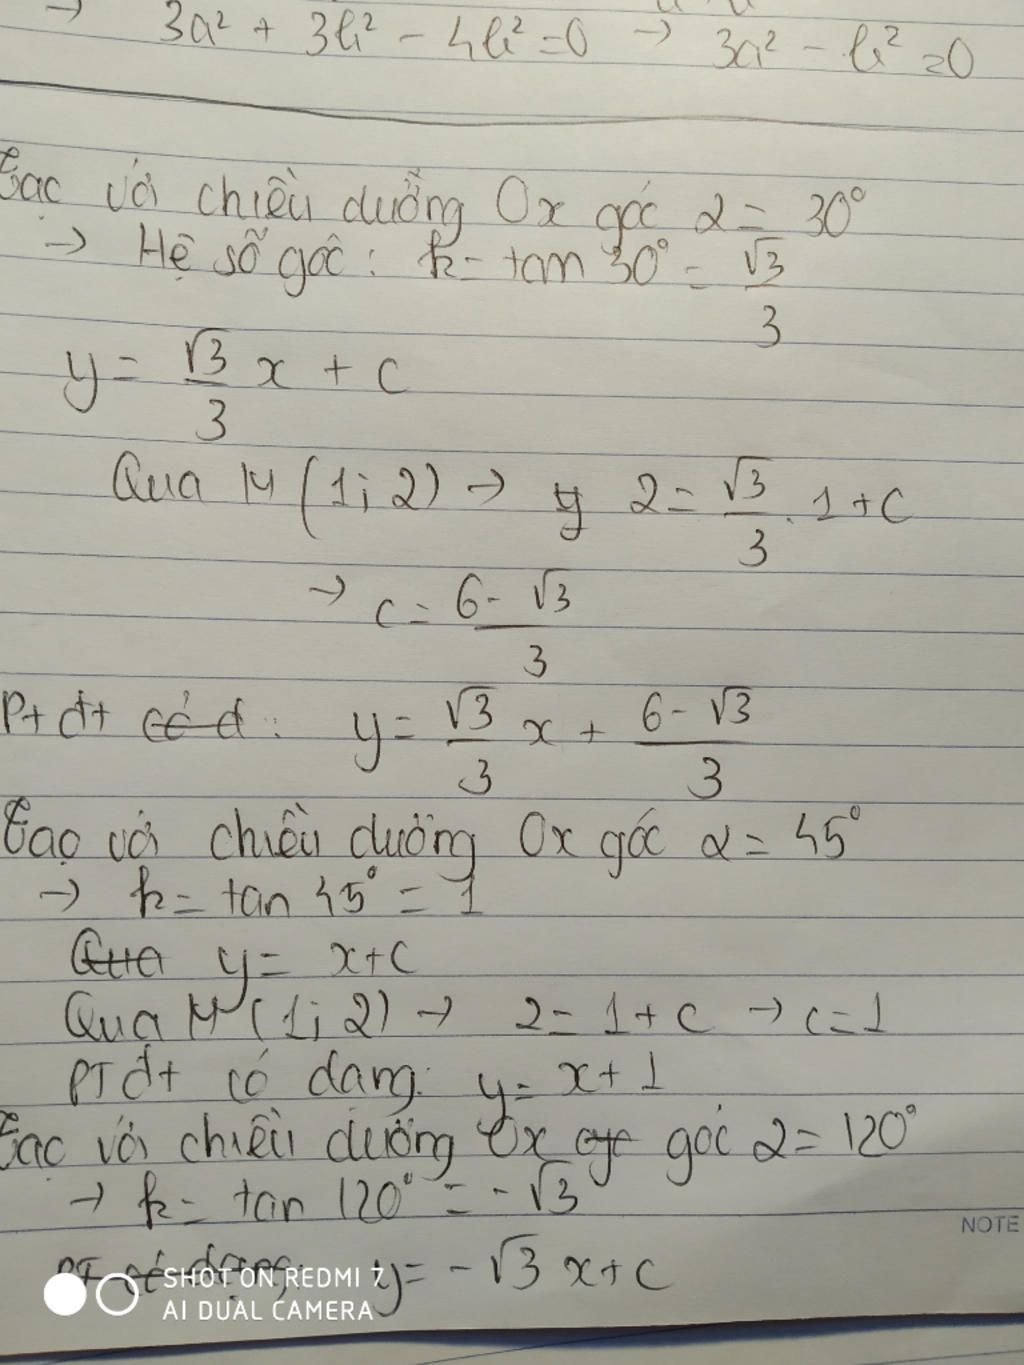 → 3a² + 3b² - 4b² = 0 → 3a² - b² = 0
Tạo với chiều dương Ox góc α = 30°
→ Hệ số góc: k = tan 30° = √3/3
y = √3/3 x + c
Qua M (1; 2) → y 2 = √3/3 . 1 + c
→ c = 6 - √3/3
Pt đt có d: y = √3/3 x + 6 - √3/3
Tạo với chiều dương Ox góc α = 45°
→ k = tan 45° = 1
Qua y = x + c
Qua M (1; 2) → 2 = 1 + c → c = 1
PT đt có dạng: y = x + 1
Tạo với chiều dương Ox góc α = 120°
→ k = tan 120° = -√3
NOTE
PT có dạng: y = -√3 x + c
SHOT ON REDMI 7
AI DUAL CAMERA